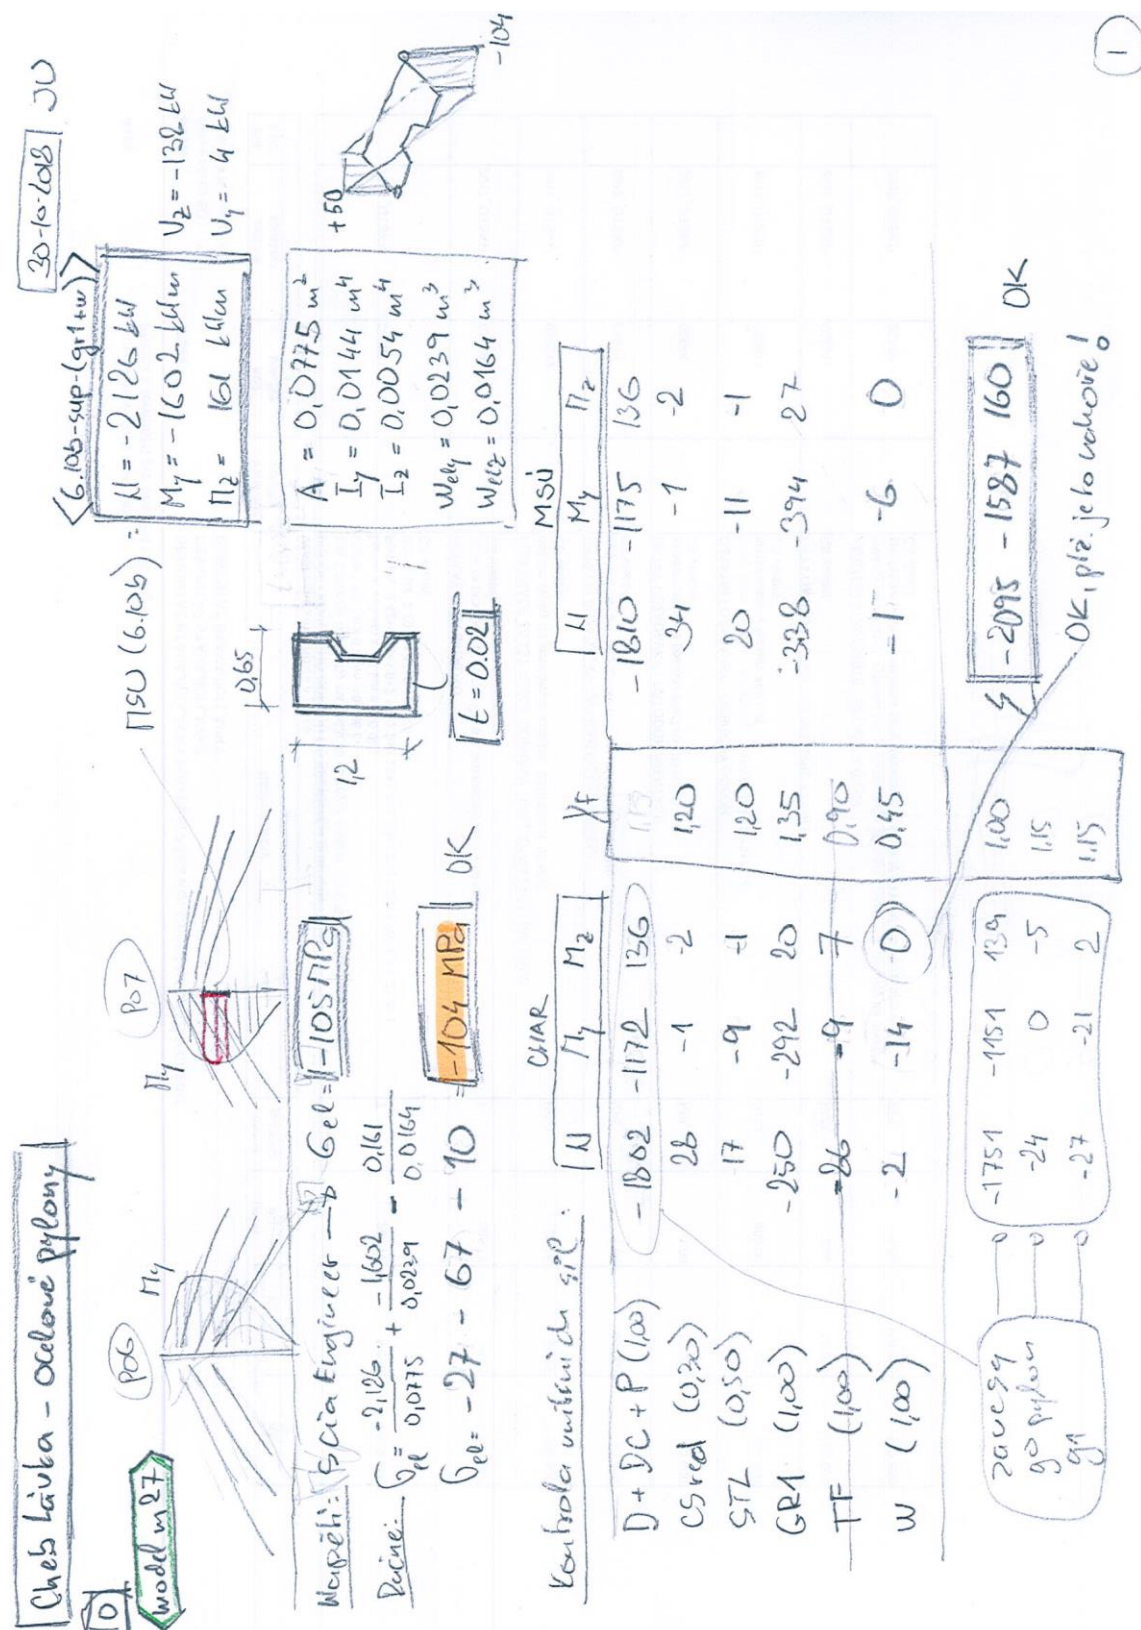 Cheb Lávka - Ocelové pylony
30-10-2018 JU
0
model m27
P06
My
P07
My
MSÚ (6.10b) =
<6.10b-sup-(gr1+w)>
N = -2126 kN
My = -1602 kNm
Mz = 161 kNm
Vz = -132 kN
Vy = 4 kN
Napětí: Scia Engineer → σel = -105 MPa
Ručně: σel = -2,126 / 0,0775 + -1,602 / 0,0239 - 0,161 / 0,0164
σel = -27 - 67 - 10 = -104 MPa OK
0,65
1,2
t = 0.02
A = 0,0775 m²
Iy = 0,0144 m⁴
Iz = 0,0054 m⁴
Wely = 0,0239 m³
Welz = 0,0164 m³
+50
-104
Kontrola vnitřních sil:
CHAR
MSÚ
N My Mz γf N My Mz
D + DC + P (1,00) -1802 -1172 136 1,15 -1810 -1175 136
CSred (0,30) 28 -1 -2 1,20 34 -1 -2
STL (0,50) 17 -9 -1 1,20 20 -11 -1
GR1 (1,00) -250 -292 20 1,35 -338 -394 27
TF (1,00) -26 -9 7 0,90
W (1,00) -2 -14 -0 0,45 -1 -6 0
závěsy -1751 -1151 139 1,00
g0 pylon -24 0 -5 1,15
g1 -27 -21 2 1,15
-2095 -1587 160 OK
OK, je to nahoře!
1